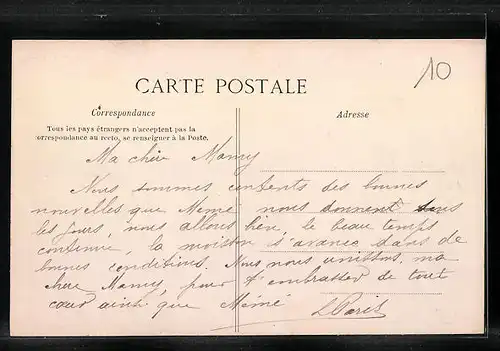 10
CARTE POSTALE
Correspondance
Adresse
Tous les pays étrangers n'acceptent pas la
correspondance au recto, se renseigner à la Poste.
Ma chère Mamy
Nous sommes contents des bonnes
nouvelles que Mémé nous donnent tous
les jours, nous allons bien, le beau temps
continue, la moisson s'avance dans de
bonnes conditions. Nous nous unissons, ma
chère Mamy, pour t'embrasser de tout
cœur ainsi que Mémé
L Paris